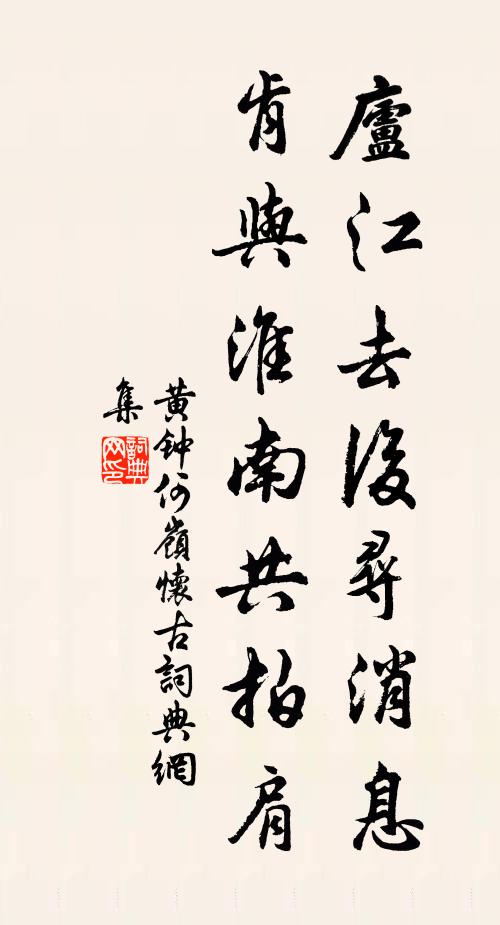 廬江去後尋消息
肯與淮南共拍肩
黄钟何嶺懷古詞典網
集
詞典
网印